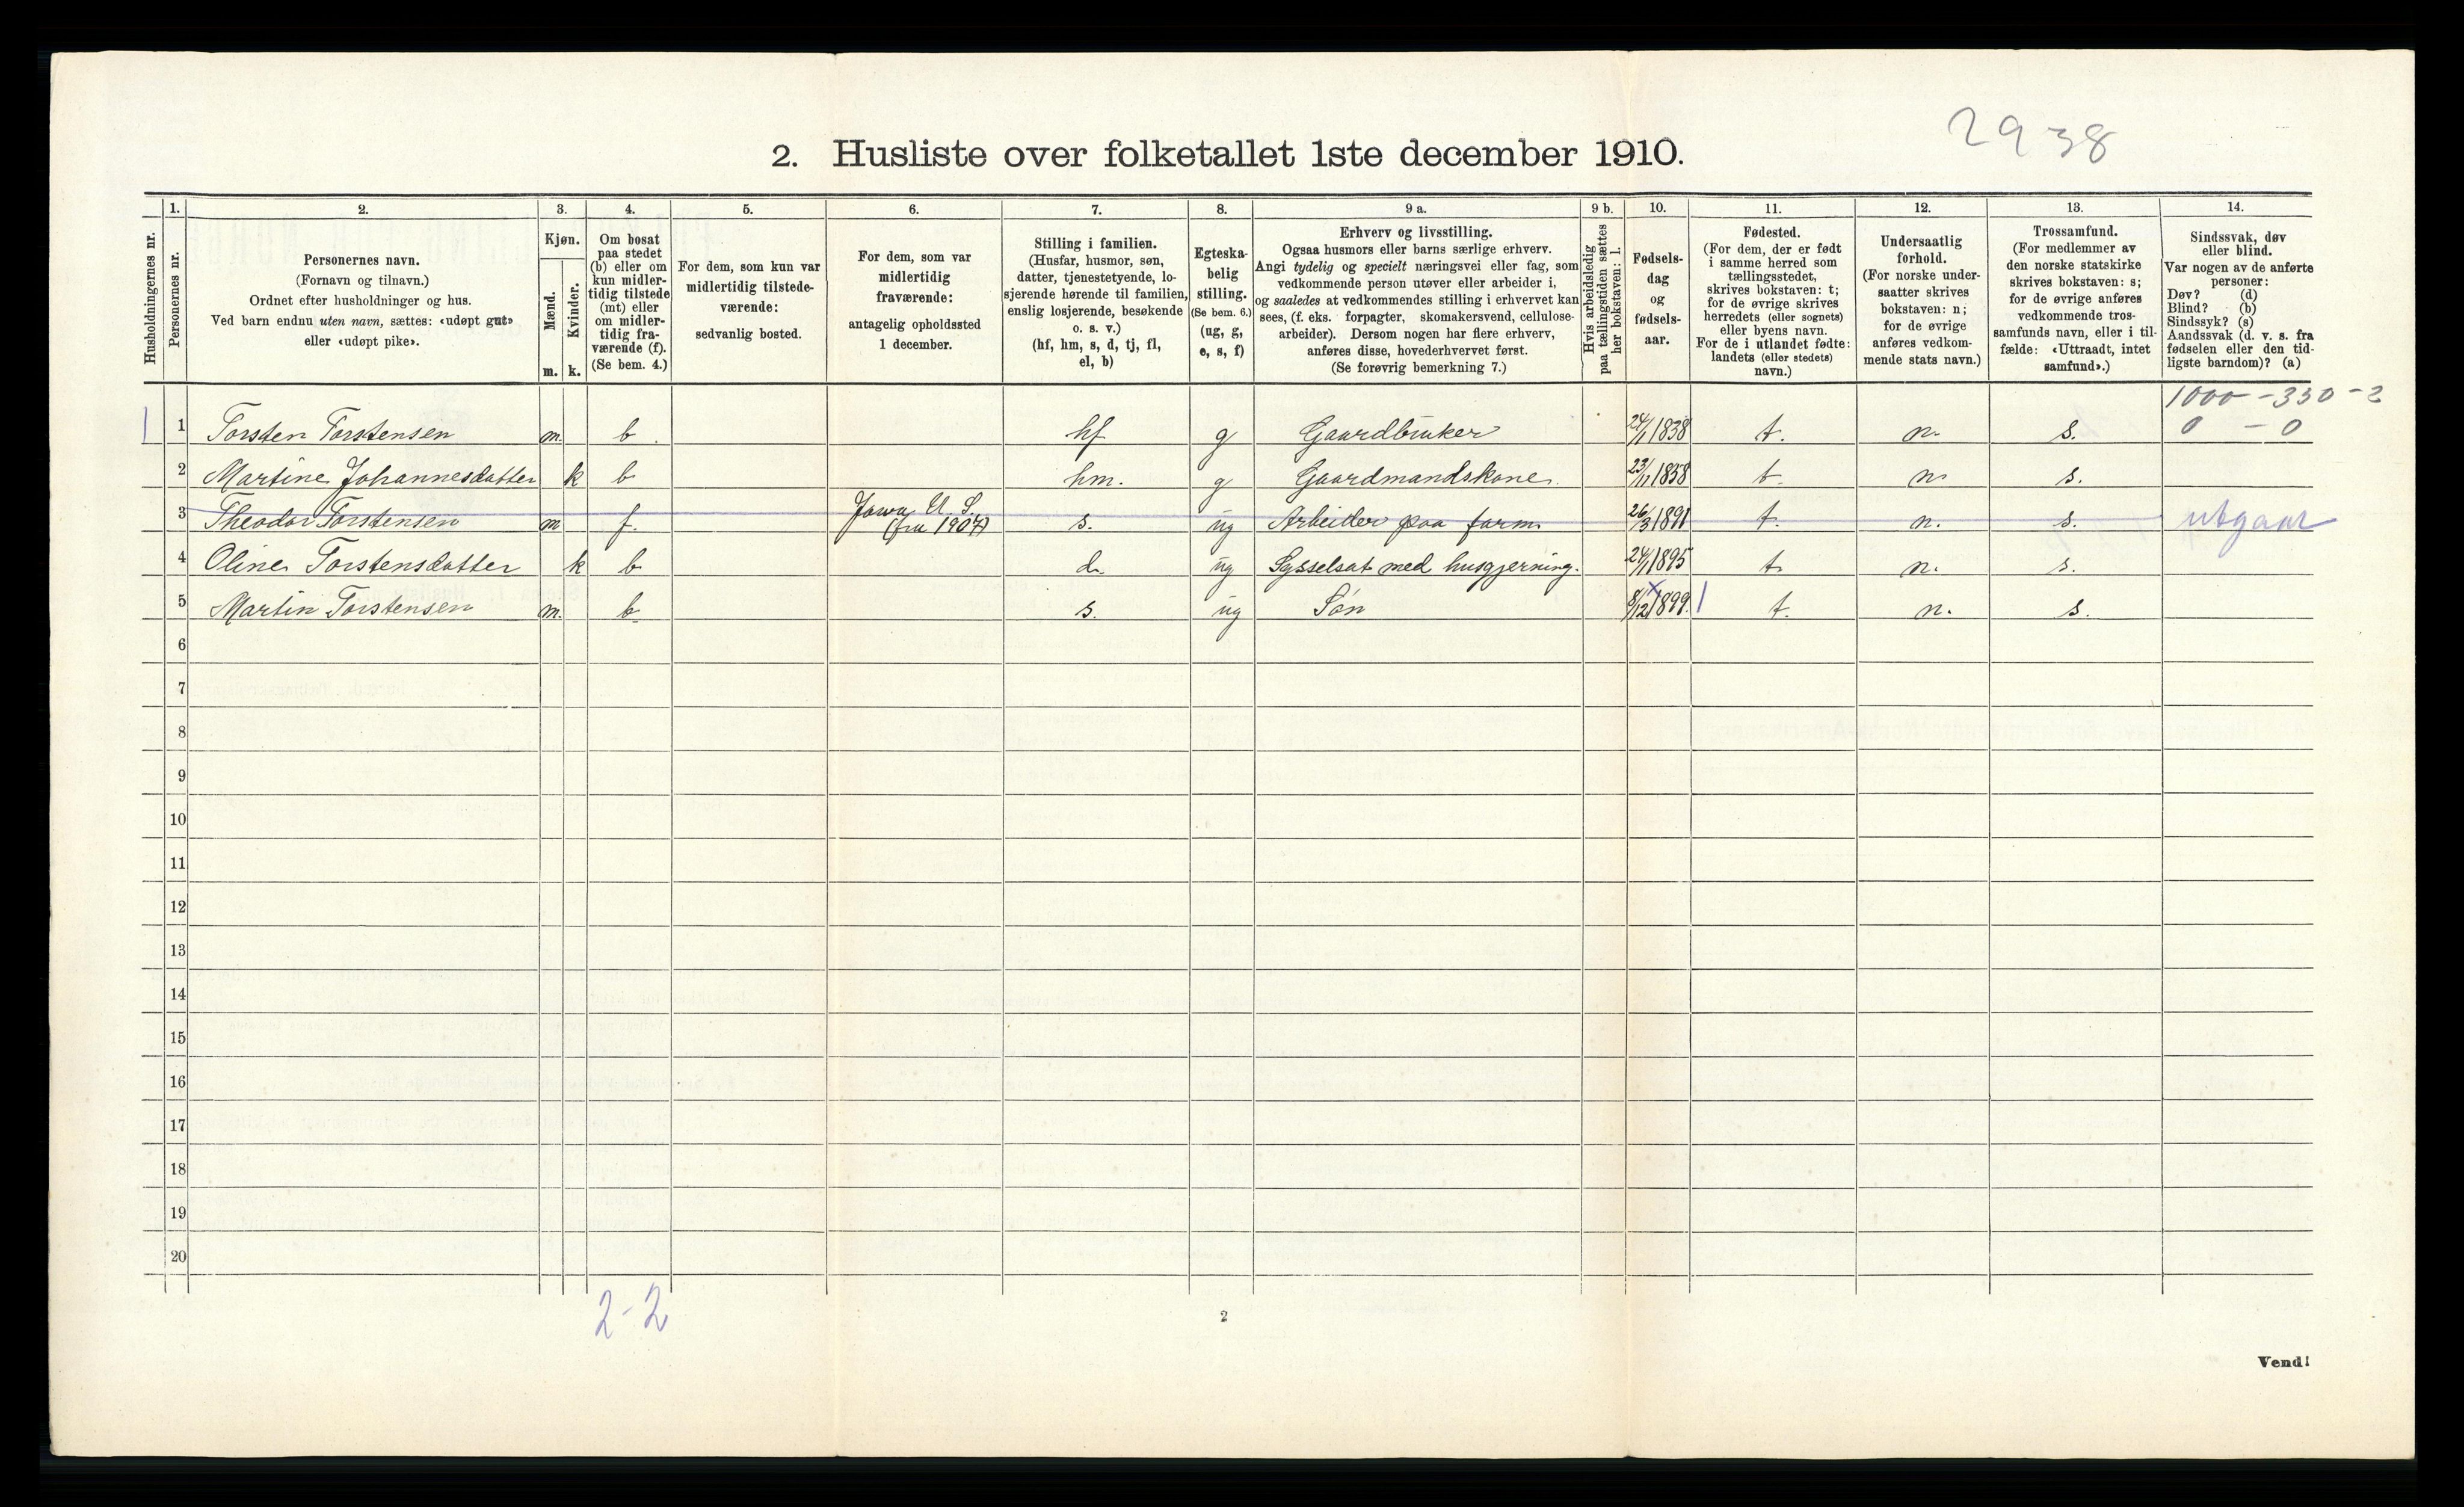 2938
2. Husliste over folketallet 1ste december 1910.
Husholdningernes nr.
1.
Personernes nr.
2.
Personernes navn.
(Fornavn og tilnavn.)
Ordnet efter husholdninger og hus.
Ved barn endnu uten navn, sættes: «udøpt gut»
eller «udøpt pike».
3.
Kjøn.
Mænd.
Kvinder.
m. k.
4.
Om bosat
paa stedet
(b) eller om
kun midler-
tidig tilstede
(mt) eller
om midler-
tidig fra-
værende (f).
(Se bem. 4.)
5.
For dem, som kun var
midlertidig tilstede-
værende:
sedvanlig bosted.
6.
For dem, som var
midlertidig
fraværende:
antagelig opholdssted
1 december.
7.
Stilling i familien.
(Husfar, husmor, søn,
datter, tjenestetyende, lo-
sjerende hørende til familien,
enslig losjerende, besøkende
o. s. v.)
(hf, hm, s, d, tj, fl,
el, b)
8.
Egteska-
belig
stilling.
(Se bem. 6.)
(ug, g,
e, s, f)
9 a.
Erhverv og livsstilling.
Ogsaa husmors eller barns særlige erhverv.
Angi tydelig og specielt næringsvei eller fag, som
vedkommende person utøver eller arbeider i,
og saaledes at vedkommendes stilling i erhvervet kan
sees, (f. eks. forpagter, skomakersvend, cellulose-
arbeider). Dersom nogen har flere erhverv,
anføres disse, hovederhvervet først.
(Se forøvrig bemerkning 7.)
9 b.
Hvis arbeidsledig
paa tællingstiden sættes
her bokstaven: l.
10.
Fødsels-
dag
og
fødsels-
aar.
11.
Fødested.
(For dem, der er født
i samme herred som
tællingsstedet,
skrives bokstaven: t;
for de øvrige skrives
herredets (eller sognets)
eller byens navn.
For de i utlandet fødte:
landets (eller stedets)
navn.)
12.
Undersaatlig
forhold.
(For norske under-
saatter skrives
bokstaven: n;
for de øvrige
anføres vedkom-
mende stats navn.)
13.
Trossamfund.
(For medlemmer av
den norske statskirke
skrives bokstaven: s;
for de øvrige anføres
vedkommende tros-
samfunds navn, eller i til-
fælde: «Uttraadt, intet
samfund».)
14.
Sindssvak, døv
eller blind.
Var nogen av de anførte
personer:
Døv? (d)
Blind? (b)
Sindssyk? (s)
Aandssvak (d. v. s. fra
fødselen eller den tid-
ligste barndom)? (a)
1000 - 330 - 2
1 1 Torsten Torstensen m. b. hf g Gaardbruker 24/1 1838 t. n. s. 0 - 0
2 Martine Johannesdatter k b hm. g Gaardmandskone. 23/11 1858 t. n. s.
3 Theodor Torstensen m f. Jowa U. S. (fra 1907) s. ug Arbeider paa farm 26/3 1891 t. n. s. utgaar
4 Oline Torstensdatter k b d. ug Sysselsat med husgjerning. 24/1 1895 t. n. s.
5 Martin Torstensen m. b. s. ug Søn 8/12 1899 t. n. s.
6
7
8
9
10
11
12
13
14
15
16
17
18
19
20
2-2
2
Vend!